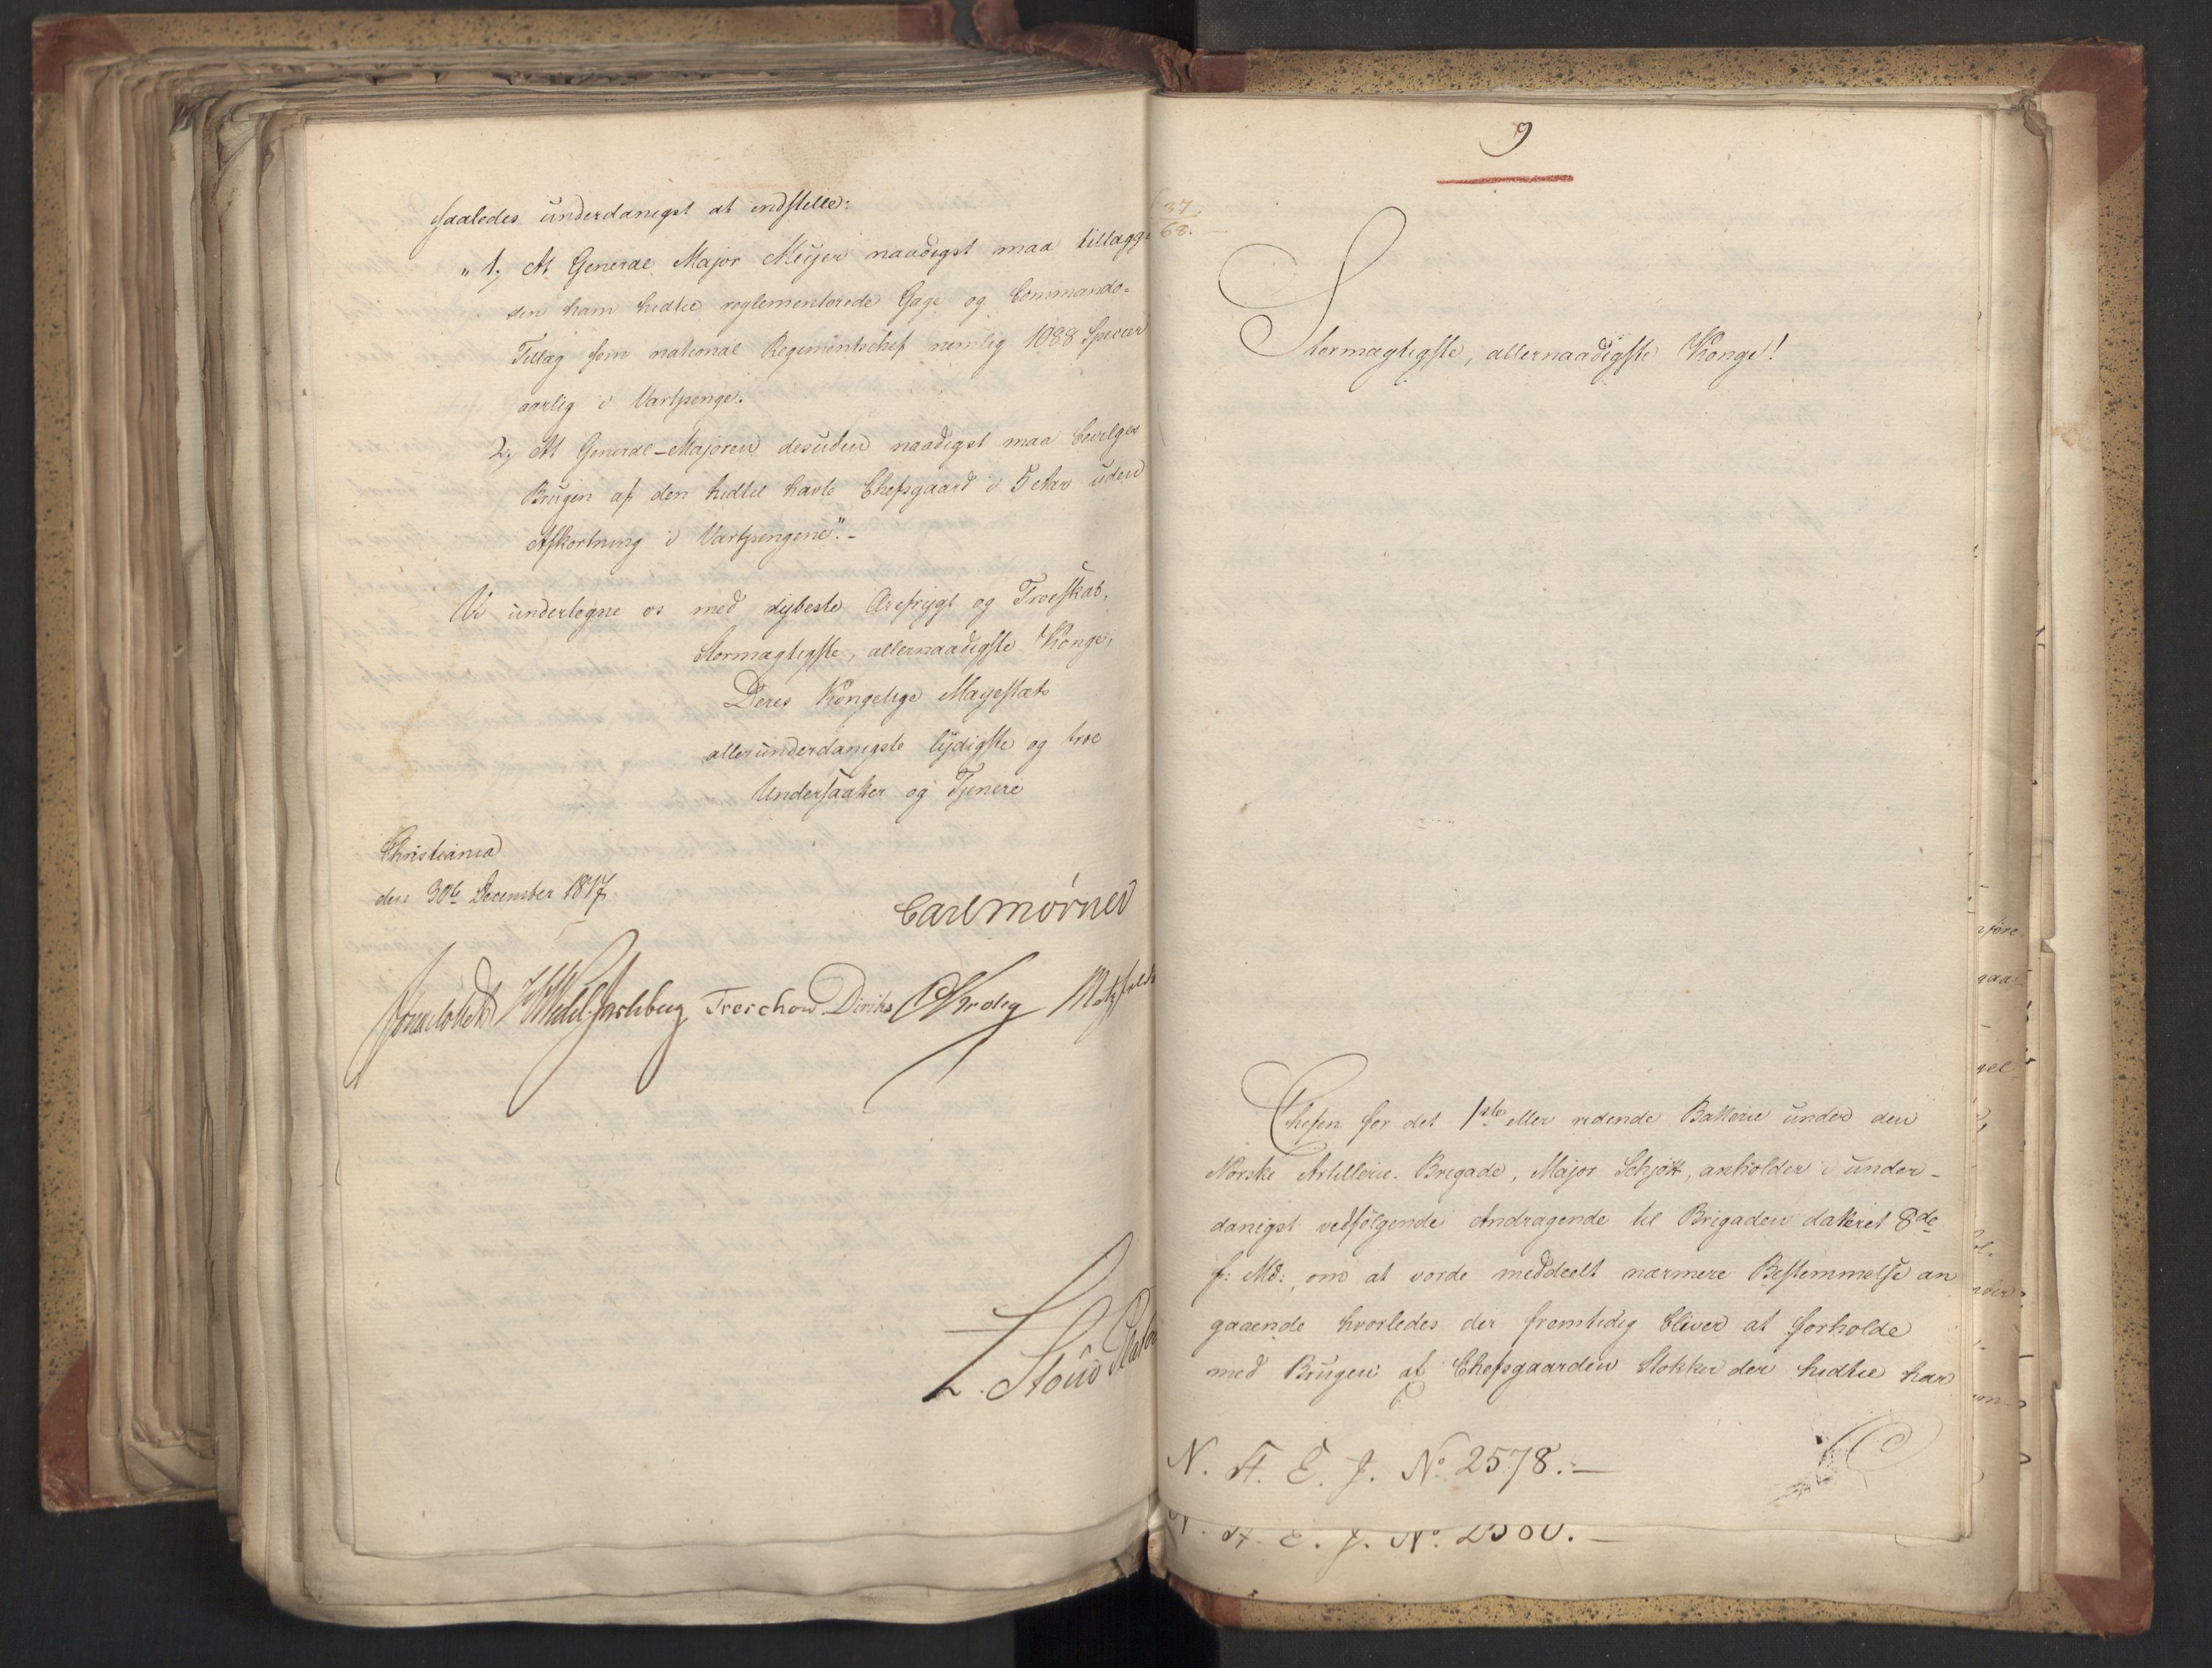 saaledes underdanigst at indstille:
„ 1, At General Major Meijer naadigst maa tillægges
den ham hidtil reglementerede Gage og Commando-
Tillæg som national Regimentschef nemlig 1088 Specier
aarlig i Vartpenge.
2, At General-Majoren desuden naadigst maa bevilges
Brugen af den hidtil havte Chefsgaard i 5 Aar uden
Afkortning i Vartpengene".-
Vi undertegne os med dybeste Ærefrygt og Troeskab,
Stormægtigste, allernaadigste Konge,
Deres Kongelige Majestæts
allerunderdanigste lydigste og troe
Undersaatter og Tjenere
Christiania
den 30te December 1817
Carl Mörner
Wedel Jarlsberg Treschow Diriks Krohg Motzfeldt
L. Stoud Platou
9
37.
68.
Stormægtigste, allernaadigste Konge!
Chefen for det 1ste eller ridende Batterie under den
Norske Artillerie-Brigade, Major Schjøtt, anholder i under-
danigst vedfølgende Andragende til Brigaden dateret 8de
f: Md:, om at vorde meddeelt nærmere Bestemmelse an
gaaende hvorledes der fremtidig bliver at forholde
med Brugen af Chefsgaarden Stokker der hidtil har
N. A. E. J. No 2578.-
N. A. E. J. No. 2580.-